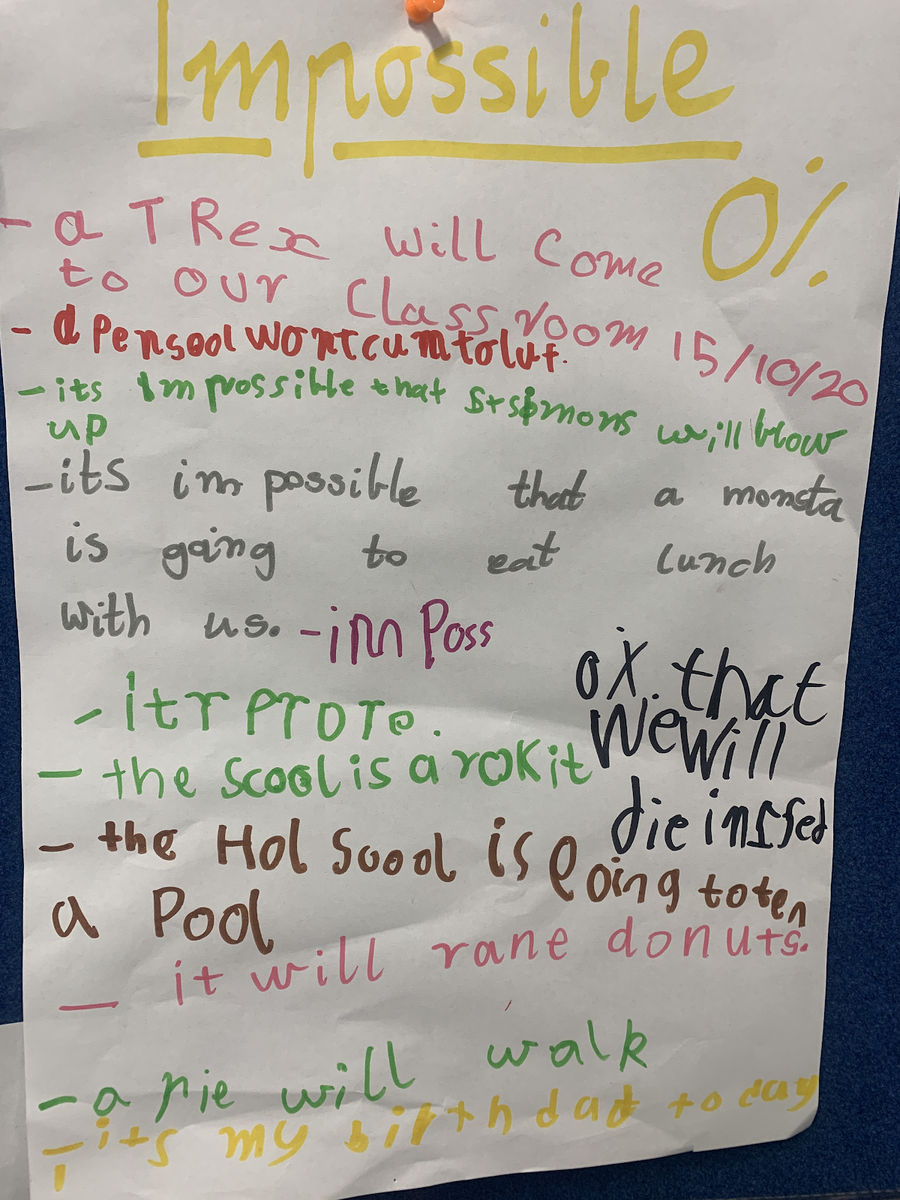 Impossible
0%
- a TRex will come
to our classroom 15/10/20
- a Pensool wont cum to luf.
- its impossible that will blow
up
- its impossible that a monsta
is going to eat lunch
with us. - im Poss
- itr PTOTe.
ox. that
we will
- the scool is a rokit
die insfed
- the Hol Scool is going to ten
a Pool
- it will rane donuts.
- a pie will walk
- its my birthdad today